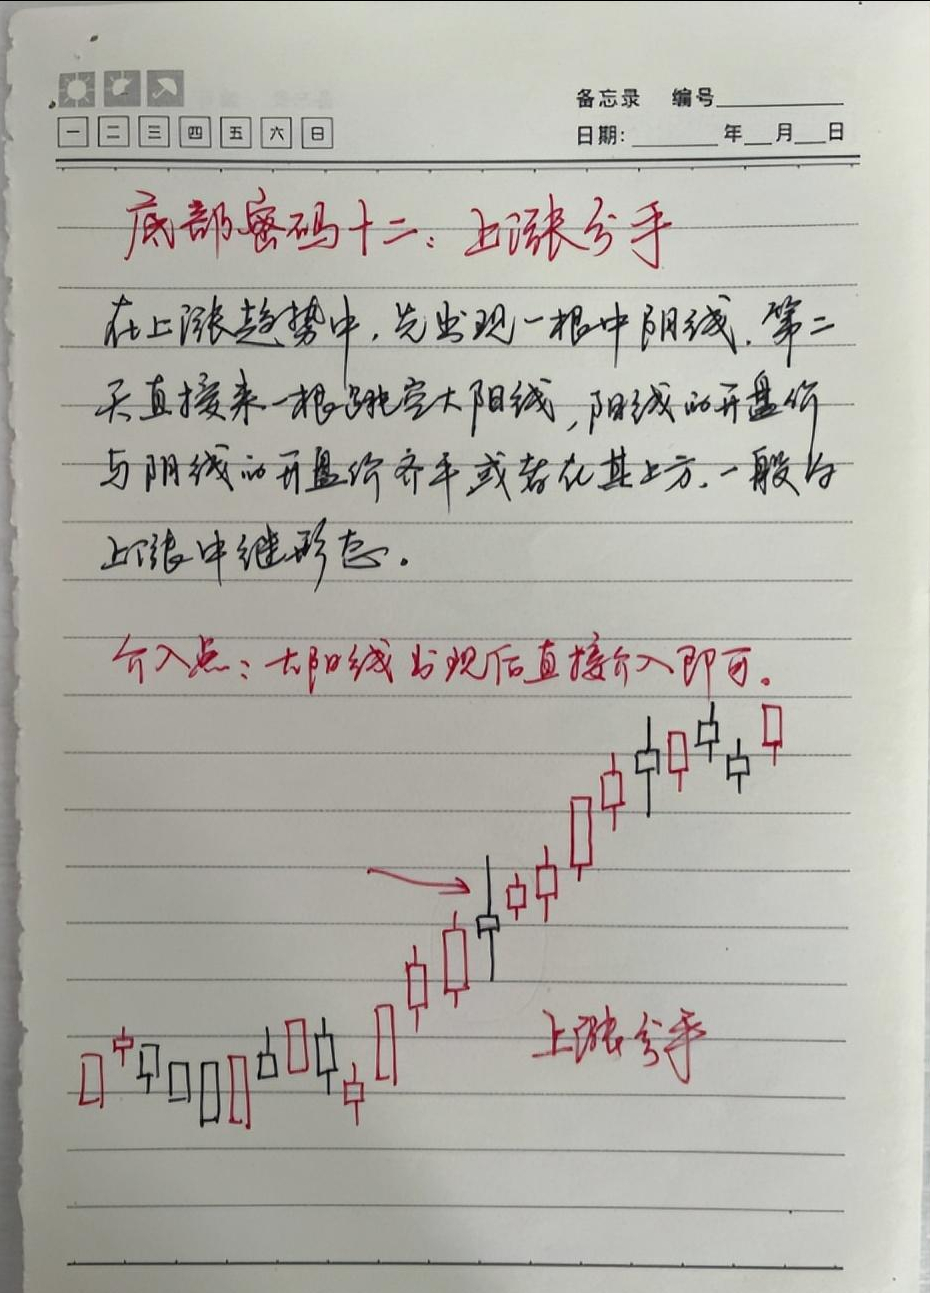 备忘录 编号
一 二 三 四 五 六 日
日期: 年 月 日
底部密码十二：上涨分手
在上涨趋势中，先出现一根中阴线，第二
天直接来一根跳空大阳线，阳线的开盘价
与阴线的开盘价齐平或者在其上方，一般为
上涨中继形态。
介入点：大阳线出现后直接介入即可。
上涨分手